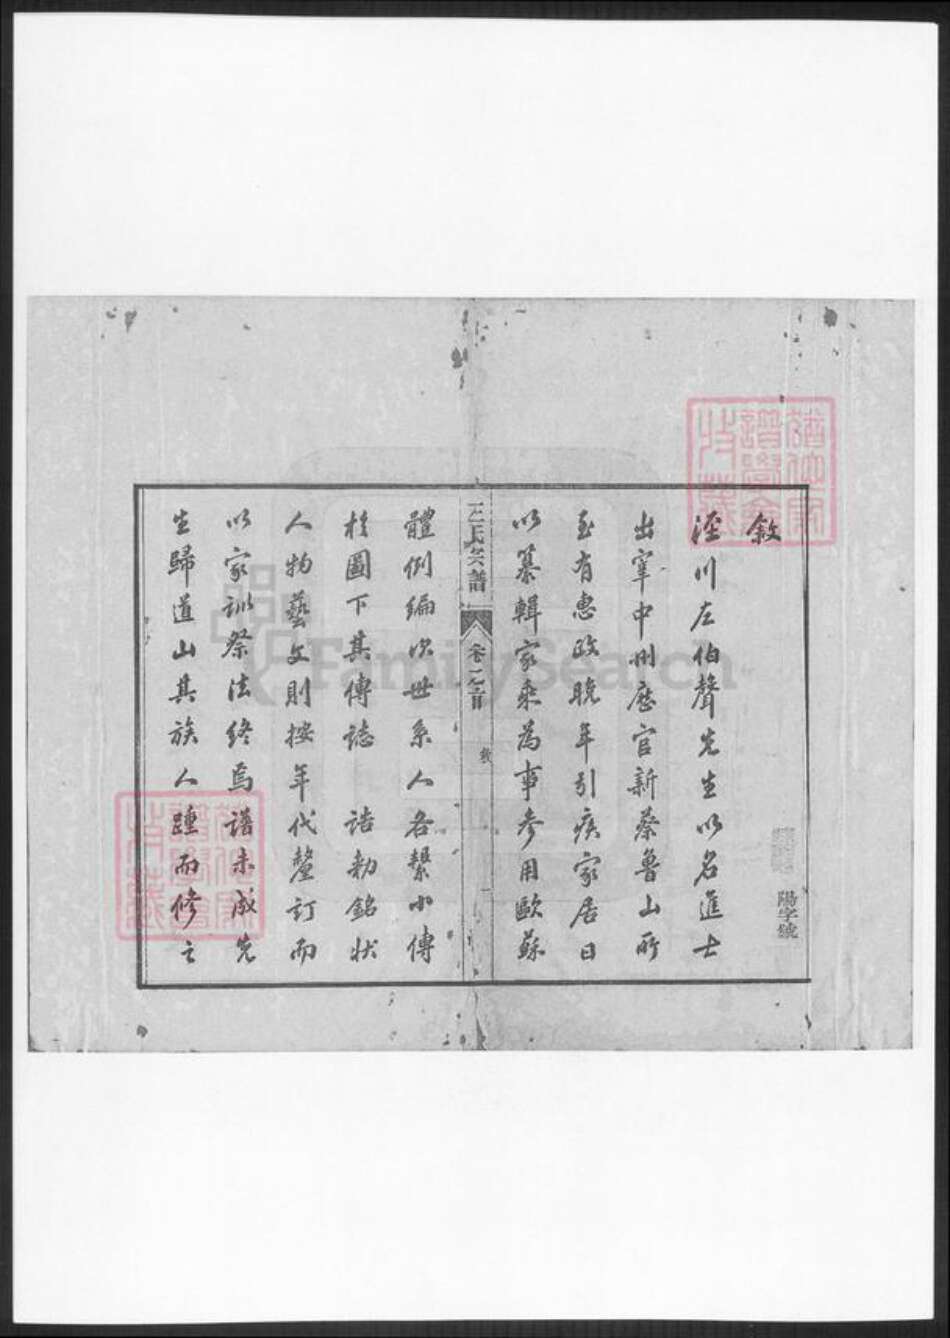 敘
涇川左伯聲先生以名進士
出宰中州歷官新蔡魯山所
至有惠政晚年引疾家居日
以纂輯家乘為事參用歐蘇
氏宗譜
卷之首
敘
一
體例編次世系人各繫小傳
於圖下其傳誌 誥勅銘狀
人物藝文則按年代釐訂而
以家訓祭法終焉譜未成先
生歸道山其族人踵而修之
陽字號
FamilySearch